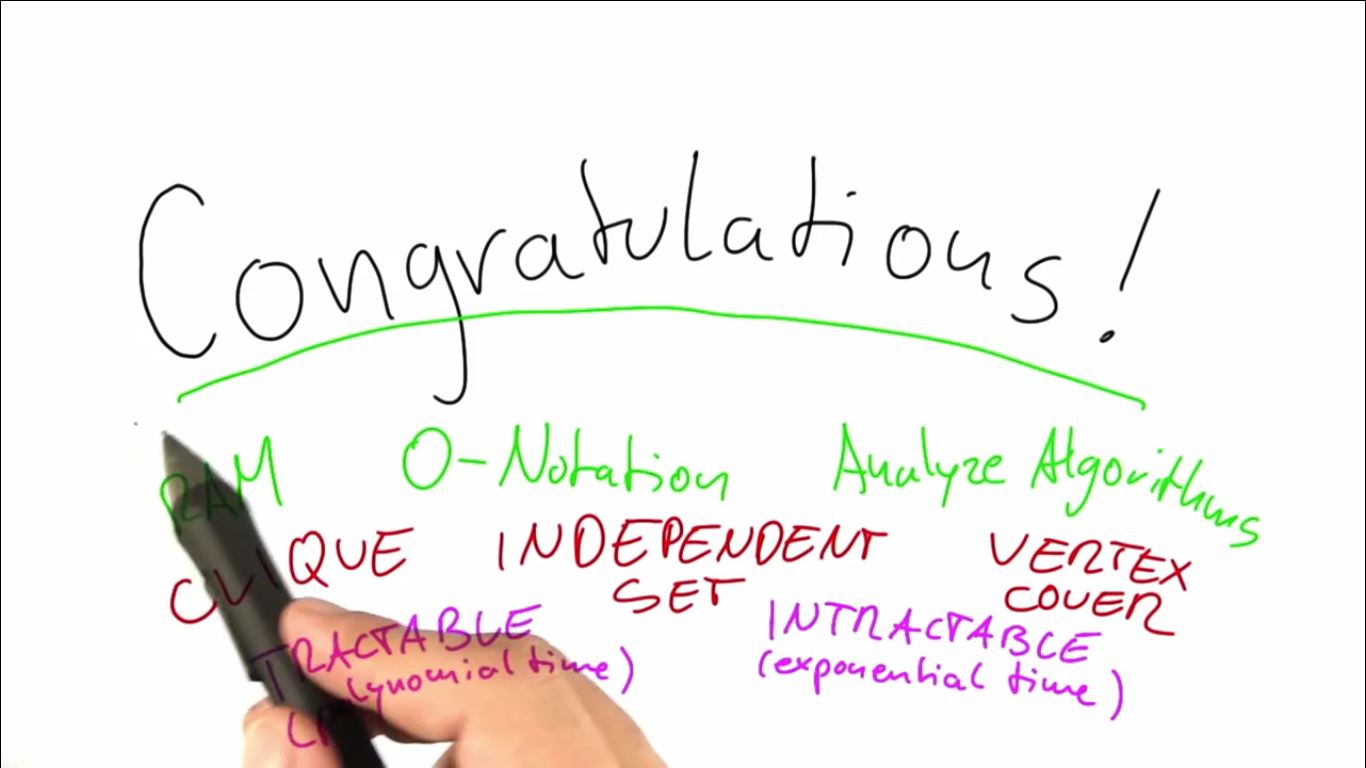 Congratulations!
RAM O-Notation Analyze Algorithms
CLIQUE INDEPENDENT SET VERTEX COVER
TRACTABLE (polynomial time) INTRACTABLE (exponential time)